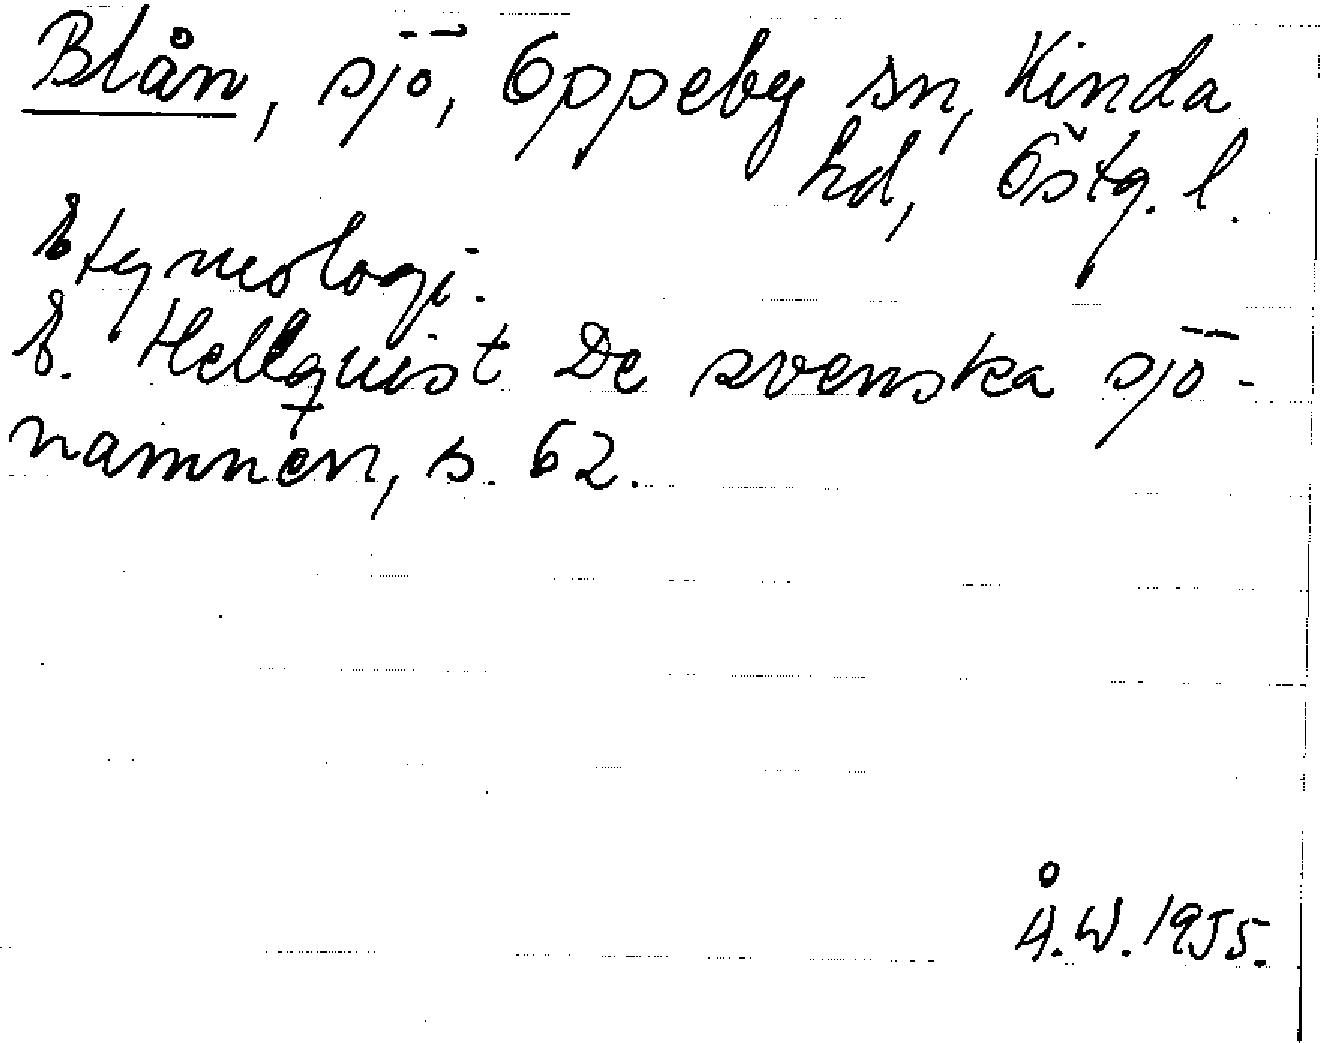 Blån, sjö, Oppeby sn, Kinda
hd, Östg. l.
Etymologi.
E. Hellquist De svenska sjö-
namnen, s. 62.
Å.W. 1955.